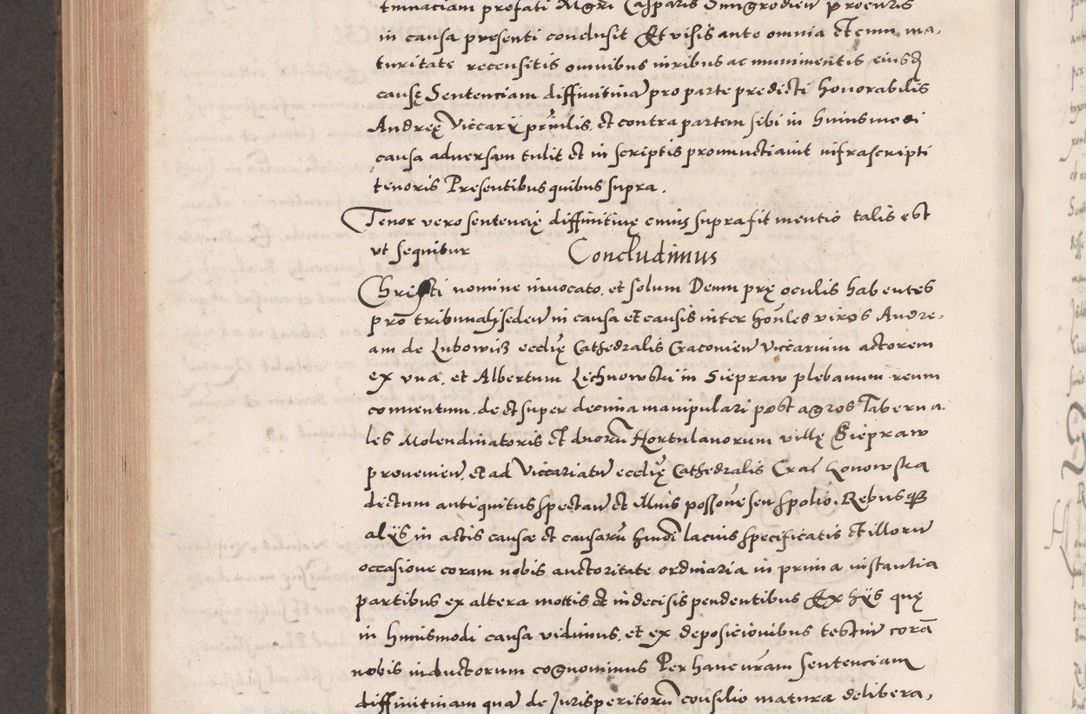 tumaciam prefati Mgri Casparis Smigrodien procuris
in causa presenti conclusit Et visis ante omnia et cum ma,
turitate recensitis omnibus iuribus ac munimentis eiusdem
causę Sententiam diffinitiuam pro parte predicti honorabilis
Andreę Viccarÿ prinilis, et contra partem sibi in huiusmodi
causa adversam tulit et in scriptis pronunctiavit infrascripti
tenoris Presentibus quibus supra.
Tenor vero sentencię diffinitiuę cuius supra fit mentio talis est
ut sequitur Concludimus
Christi nomine invocato, et solum Deum prę oculis habentes
pro tribunali seden in causa et causis inter honles viros Andre,
am de Lubowis ecclię Cathedralis Cracovien Viccarium actorem
ex una, et Albertum Lichnowski in Siepraw plebanum reum
conventum, de et super decima manipulari post agros Taberna
les Molendinatoris et duoru Hortulanorum villę Siepraw
provenien, et ad Viccariatu ecclię Cathedralis Crac Zonowska
dictum antiquitus spectan et illius possone seu spolio, Rebusq
alÿs in actis causæ et causaru huiusmodi lacius specificatis et illoru
occasione coram nobis auctoritate ordinaria in prima instantia
partibus ex altera mottis et indecisis pendentibus Ex hÿs quę
in huiusmodi causa vidimus, et ex deposicionibus testium cora
nobis inductorum cognovimus Per hanc nram Sententiam
diffinitiuam qua de Jurisperitoru consilio matura delibera,